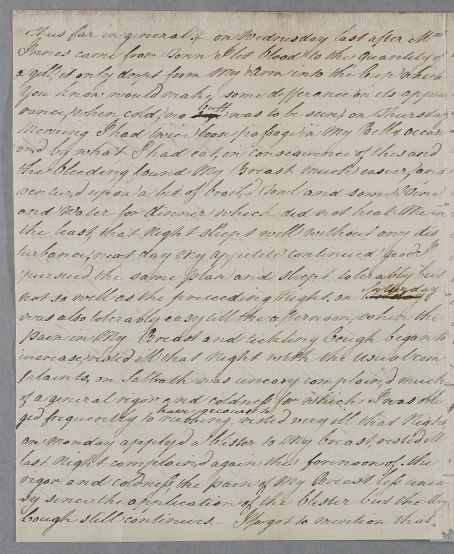 thus far in general of on Wednesday last after Mr
Innes came from Town I let blood to the quantity of
a gill, it only dropt from My Arm into the Cup which
You know would make some difference in its appea
rance, when cold, no buff was to be seen, on Thursday
Morning I had twice loose passage in My Belly occasi
ond by what I had eat, in consequence of this and
the bleeding found My Breast much easier, and
ventur'd upon a bit of broil'd fowl and some Wine
and Water for dinner which did not heat Me in
the least, that Night slept well without any dis
turbance, next day My appetite continued good I
pursued the same plan and slept tolerably but
not so well as the preceeding Night, on
was also tolerably easy till the afternoon, when the
pain in My Breast and tickling Cough began to
increase, rested ill that Night with the usual com
plaints, on Sabbath was uneasy complain'd much
of a general rigor and coldness for which I was obli
ged frequently to have recourse to rubbing, rested very ill that Night
on Monday apply'd a blister to My breast, rested ill
last Night complain'd again this forenoon of the
rigor and coldness, the pain of My Breast less unea
sy since the application of the blister but the dry
Cough still continues - I forgot to mention that